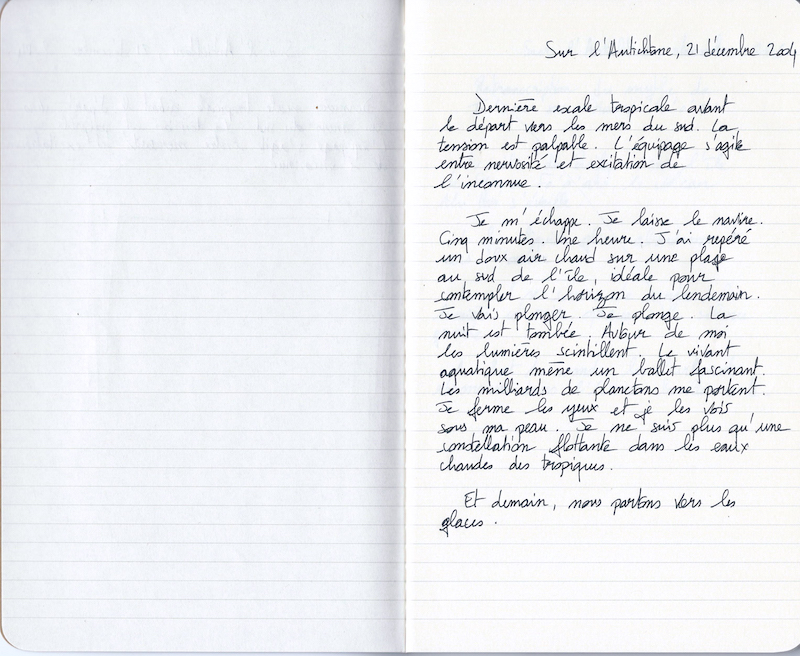 Sur l'Antichtone, 21 décembre 2004
Dernière escale tropicale avant
le départ vers les mers du sud. La
tension est palpable. L'équipage s'agite
entre nervosité et excitation de
l'inconnue.
Je m'échappe. Je laisse le navire.
Cinq minutes. Une heure. J'ai repéré
un doux air chaud sur une plage
au sud de l'île, idéale pour
contempler l'horizon du lendemain.
Je vais plonger. Je plonge. La
nuit est tombée. Autour de moi
les lumières scintillent. Le vivant
aquatique mène un ballet fascinant.
Les milliards de planctons me portent.
Je ferme les yeux et je les vois
sous ma peau. Je ne suis plus qu'une
constellation flottante dans les eaux
chaudes des tropiques.
Et demain, nous partons vers les
glaces.